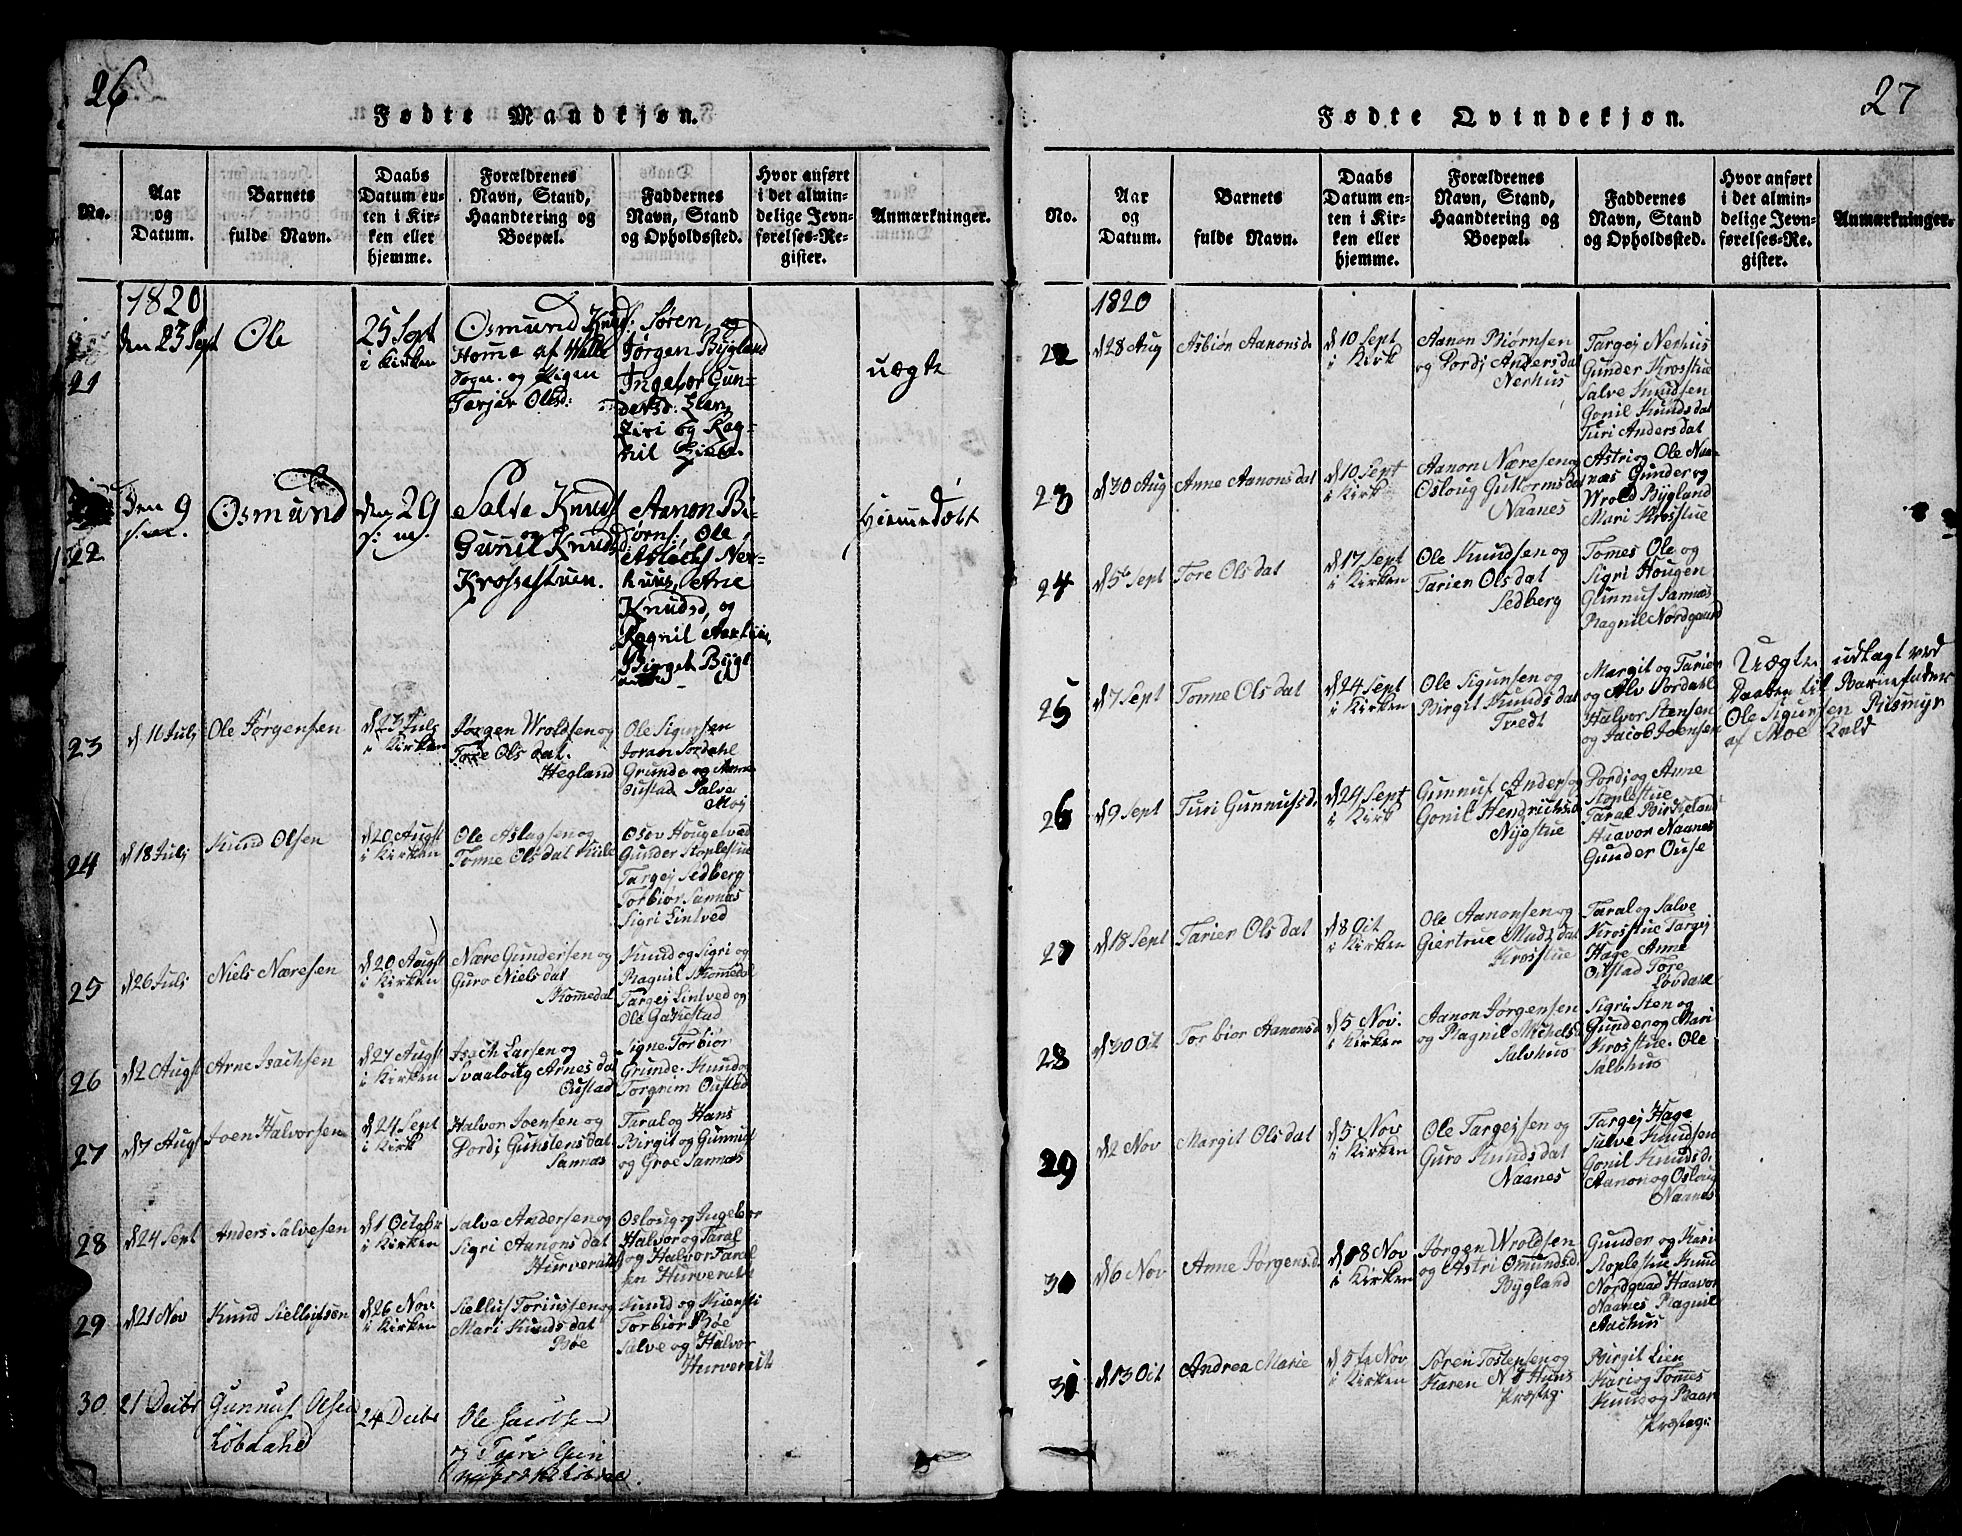 26
Fødte Mandkjøn.
No.
Aar
og
Datum.
Barnets
fulde Navn.
Daabs
Datum en-
ten i Kir-
ken eller
hjemme.
Forældrenes
Navn, Stand,
Haandtering og
Boepæl.
Faddernes
Navn, Stand
og Opholdssted.
Hvor anført
i det almin-
delige Jevn-
førelses-Re-
gister.
Anmærkninger.
1820
21
den 23 Sept
Ole
25 Sept
i Kirken
Osmund Knuds:
Homme af Walle
Sogn. og Pigen
Tarjer Olsd:
Søren, og
Jørgen Bygland
Ingebor Gun-
dersd:
Siri og Rag-
nil
uægte
22
Den 9
Osmund
den 29
Salve Knuds
og
Gunil Knudsd
Krossestuen.
Aanon Bi-
ørns:, Ole
Aslachs Ner-
huus, Ane
Knudsd, og
Ragnil
Birget Bygl
Hiemmedøbt
23
d 16 Julj
Ole Jørgensen
d 23 Juls
i Kirken
Jørgen Wroldsen og
Tore Olsdat.
Hegland
Ole Sigursen
Joran Sordahl
Grunde og Anne
Oustad Salve
Moj
24
d 18 Julj
Knud Olsen
d 20 Augst
i Kirken
Ole Aslagsen og
Tonne Olsdat Kile
Osov Hougetved
Gunder Stoplestue
Targej Sedberg
Torbiør Sannæs
Sigri Lintved
25
d 26 Julj
Niels Næresen
d 20 Augst
i Kirken
Nære Gundersen og
Guro Nielsdat
Skomedal
Knud og Sigri og
Ragnil Skomedal
Targej Lintved og
Ole Gakestad
26
d 2 Augst
Arne Isachsen
d 27 Augst
i Kirken
Isach Larsen og
Svaaloug Arnesdat
Oustad
Signe Torbiør
Grunde. Knud og
Torgrim Oustad
27
d 7 Augst
Joen Halvorsen
d 24 Sept
i Kirk
Halvor Joensen og
Dordj Gunstensdat
Sannæs
Taral og Hans
Birgit og Gunnuf
og Groe Sannæs
28
d 24 Sept
Anders Salvesen
d 1 Octobr
i Kirken
Salve Andersen og
Sigri Aanonsdat
Hurverak
Osloug og Ingebor
Halvor og Taral
og Halvor Taral
sen Hurverak
29
d 21 Nov
Knud Siellufsøn
d 26 Nov:
i Kirken
Sielluf Toriussen og
Mari Knudsdat
Bøe
Knud og Kiersti
Torbiør Bøe
Salve og Halvor
Hurverak
30
21 Decbr
Gunnuf Olsen
Løbdahl
24 Decbr
Ole Jacobsen
og Turi Gun
27
Fødte Qvindekjøn.
No.
Aar
og
Datum.
Barnets
fulde Navn.
Daabs
Datum en-
ten i Kir-
ken eller
hjemme.
Forældrenes
Navn, Stand,
Haandtering og
Boepæl.
Faddernes
Navn, Stand
og Opholdssted.
Hvor anført
i det almin-
delige Jevn-
førelses-Re-
gister.
Anmærkninger.
1820
22
d 28 Aug
Asbiør Aanonsd.
d 10 Sept
i Kirk
Aanon Biørnsen
og Dordj Andersdat
Nerhus
Targej Nerhus
Gunder Krosstue
Salve Knudsen
Gonil Knudsdat
Turi Andersdat
23
d 30 Aug
Anne Aanonsdat
d 10 Sept
i Kirk
Aanon Næresen og
Osloug Guttormsdat
Naanes
Astri og Ole Naa-
næs Gunder og
Wrold Bygland
Mari Krosstue
24
d 5 Sept
Tore Olsdat
d 17 Sept
i Kirken
Ole Knudsen og
Tarien Olsdat
Sedberg
Tomes Ole og
Sigri Hougen
Gunnuf Sannæs
Ragnil Nordgaard
25
d 7 Sept
Tonne Olsdat
d 24 Sept
i Kirken
Ole Sigursen og
Birgit Knudsdat
Tvedt
Margit og Tarien
og Alv Sordahl
Halvor Stensen
og Jacob Joensen
Uægte, udlagt ved
Daaben til Barnefader
Ole Sigursen Rismyr
af Moe Kald
26
d 9 Sept
Turi Gunnufsd.
d 24 Sept
i Kirk
Gunnuf Anders og
Gonil Hendrichsd
Nyestue
Dordj og Anne
Stoplestue
Taral Birkeland
Haavor Naanes
Gunder Ouse
27
d 18 Sept
Tarier Olsdat
d 8 Oct
i Kirken
Ole Aanonsen og
Giertrue Madsdat
Krosstue
Taral og Salve
Krosstue Targej
Hage Anne
Oustad Tore
Løvdahl
28
d 30 Oct
Torbior Aanonsd.
d 5 Nov:
i Kirken
Aanon Jørgensen
og Ragnil Michelsd
Salvhus
Sigri Sten og
Gunder og Mari
Krosstue. Ole
Salbhus
29
d 2 Nov
Margit Olsdat
d 5 Nov
i Kirken
Ole Targejsen og
Guro Knudsdat
Naanes
Targej Hage
Salve Knudsen
Gonil Knudsd.
Aanon og Osloug
Naanes
30
d 6 Nov
Anne Jørgensd.
d 8 Nov
i Kirken
Jørgen Wroldsen
og Astri Omundsd.
Bygland
Gunder og Kari
Stoplestue Knud
Nordgaad Haavor
Naanes Ragnil
Aachus
31
d 13 Oct
Andrea Marie
d 5te Nov
i Kirken
Søren Tostensen og
Karen
Præsteg:
Birgit Lien
Kari og Tomes
Knud og Baar
Præsteg: